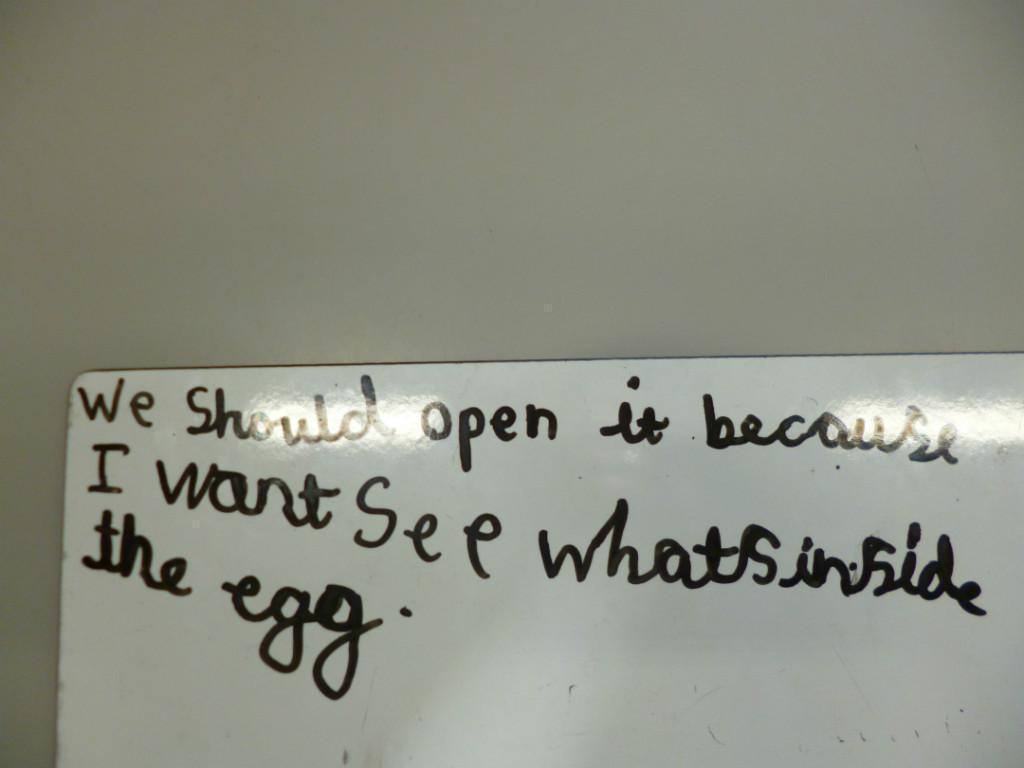 We Should open it because
I want See whats inside
the egg.